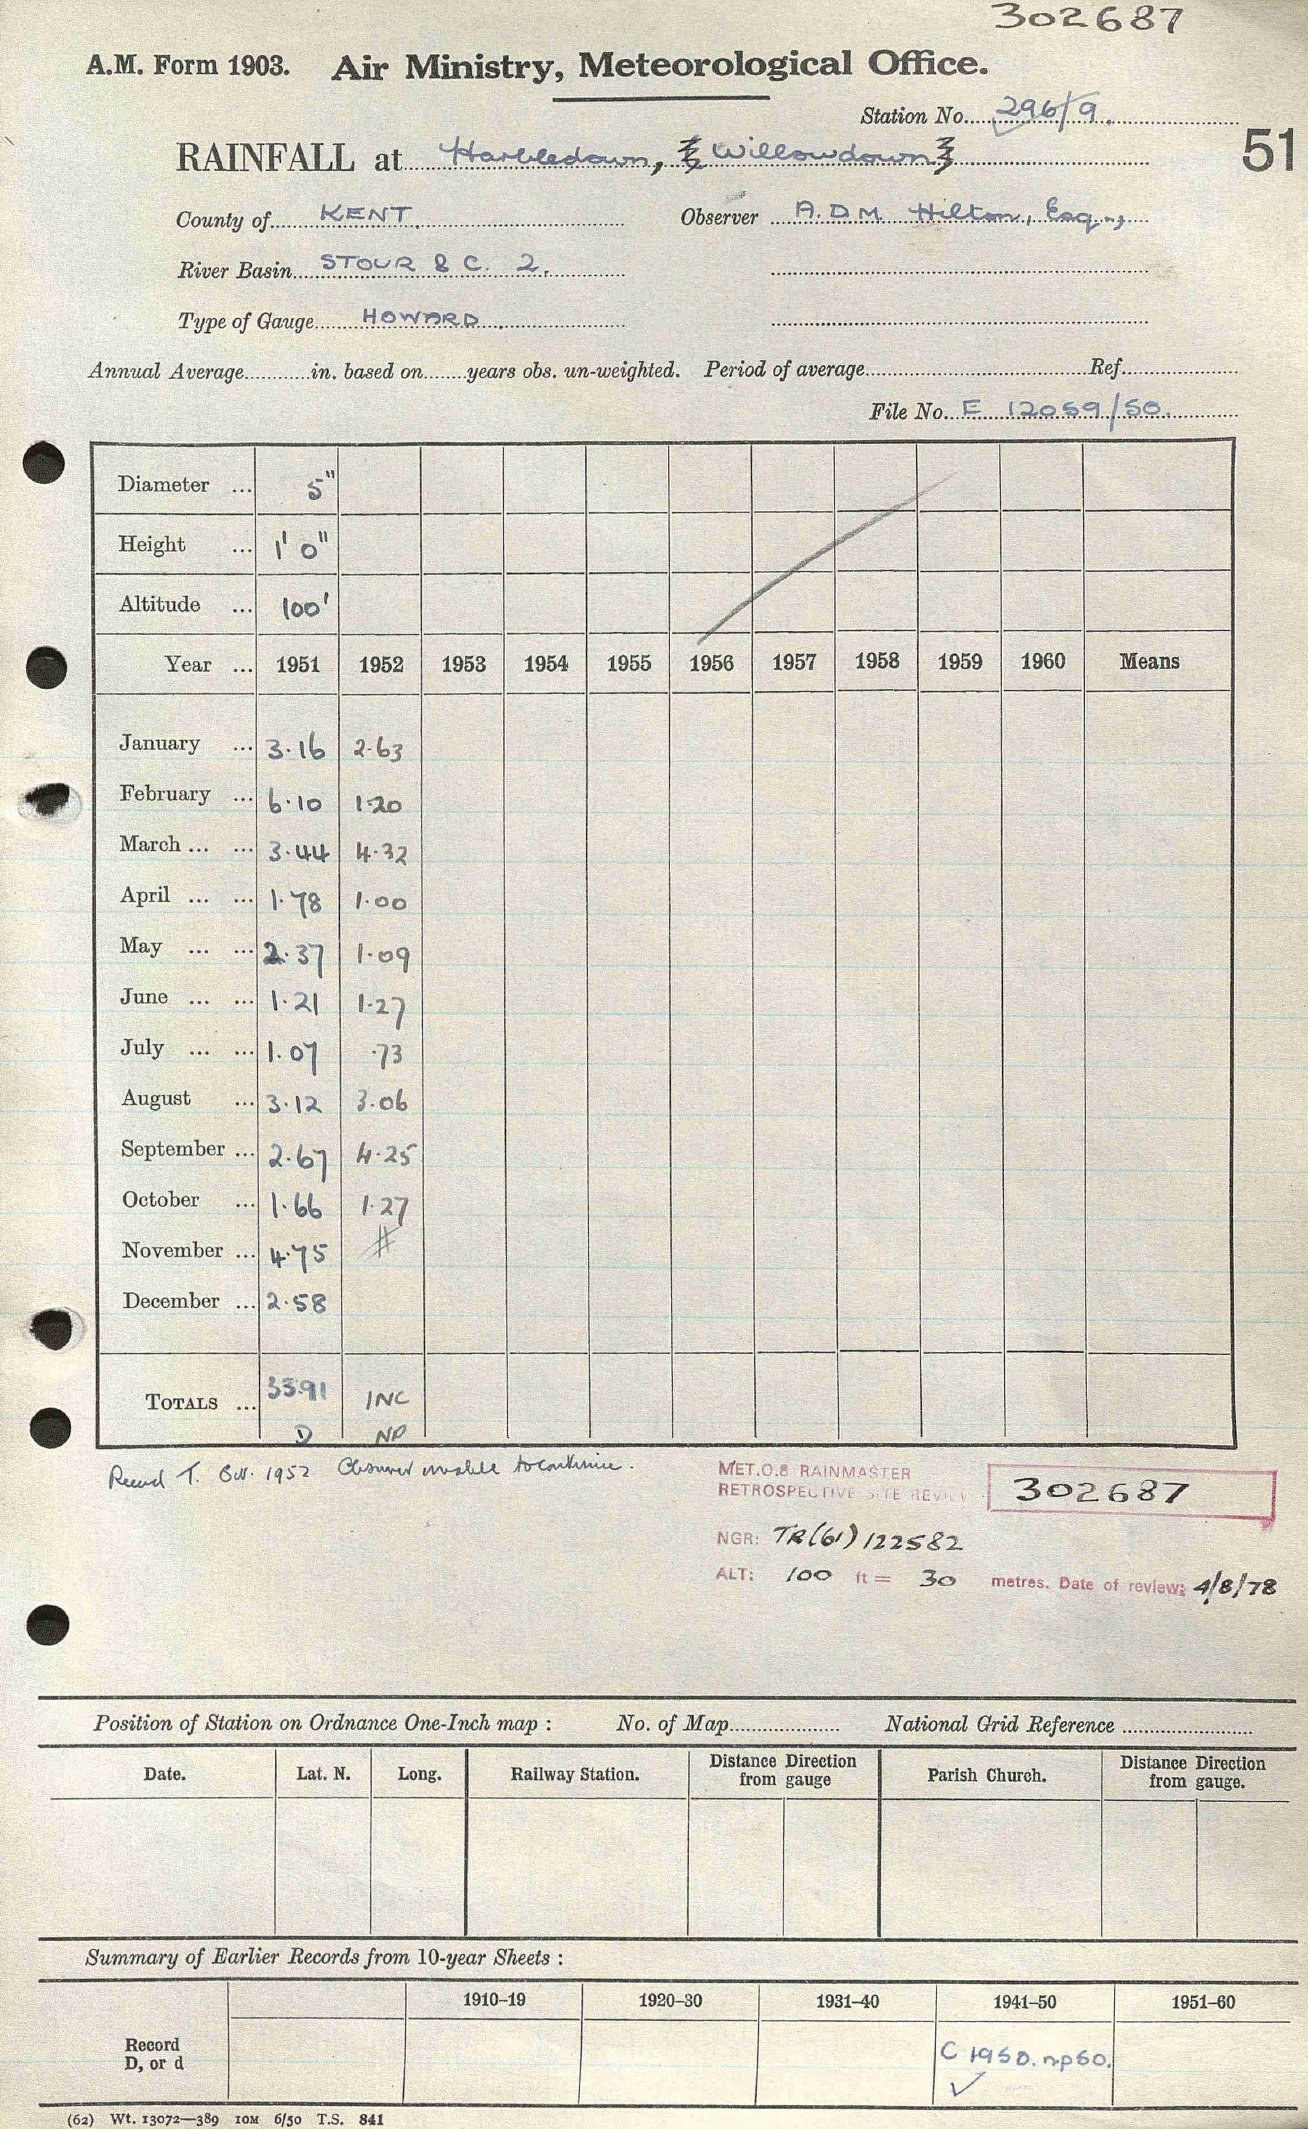 302687
A.M. Form 1903. Air Ministry, Meteorological Office.
Station No. 296/9.
51
RAINFALL at Harbledown, { Willowdown }
County of KENT. Observer A.D.M. Hilton, Esq.,
River Basin STOUR & C. 2.
Type of Gauge HOWARD
Annual Average in. based on years obs. un-weighted. Period of average Ref.
File No. E 12059/50.
Diameter ... 5"
Height ... 1' 0"
Altitude ... 100'
Year ... 1951 1952 1953 1954 1955 1956 1957 1958 1959 1960 Means
January ... 3.16 2.63
February ... 6.10 1.20
March ... ... 3.44 4.32
April ... ... 1.78 1.00
May ... ... 2.37 1.09
June ... ... 1.21 1.27
July ... ... 1.07 .73
August ... 3.12 3.06
September ... 2.67 4.25
October ... 1.66 1.27
November ... 4.75 #
December ... 2.58
TOTALS ... 33.91 INC
D NP
Record T. Oct. 1952 Observer unable to continue.
MET.O.8 RAINMASTER
RETROSPECTIVE SITE REVIEW 302687
NGR: TR(61)122582
ALT: 100 ft = 30 metres. Date of review: 4/8/78
Position of Station on Ordnance One-Inch map : No. of Map National Grid Reference
Date. Lat. N. Long. Railway Station. Distance Direction from gauge Parish Church. Distance Direction from gauge.
Summary of Earlier Records from 10-year Sheets :
1910–19 1920–30 1931–40 1941–50 1951–60
Record
D, or d
C 1950. np50.
✓
(62) Wt. 13072—389 10M 6/50 T.S. 841